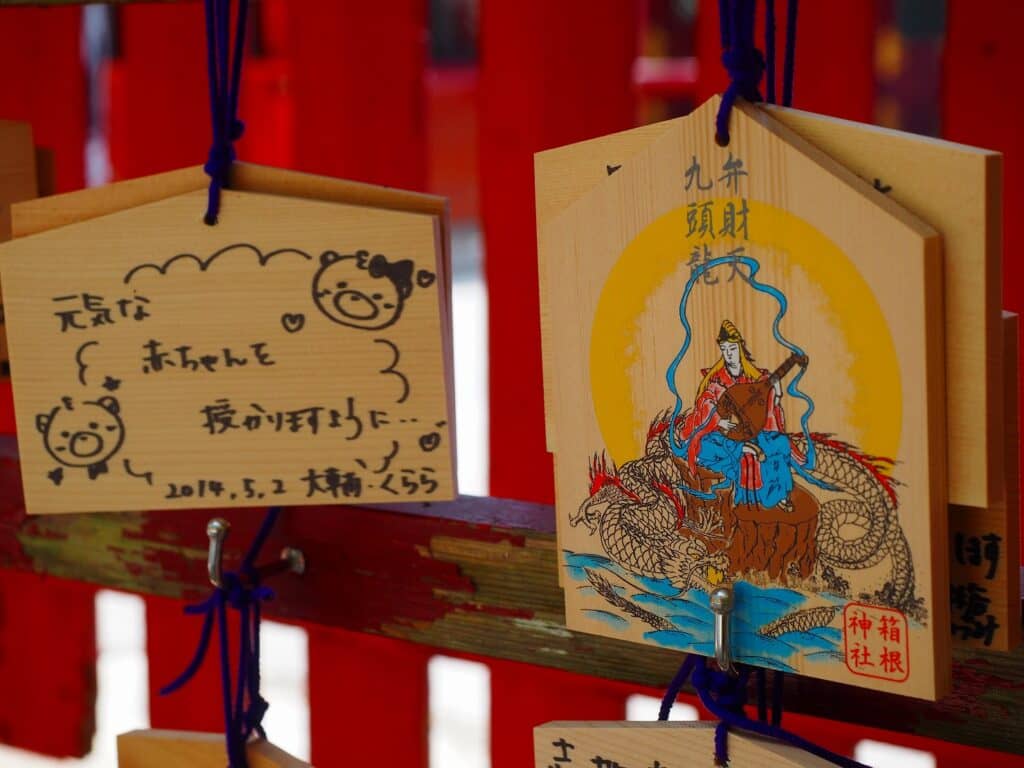 元気な
赤ちゃんを
授かりますように…
2014.5.2 大輔・くらら
弁財天
九頭龍
箱根
神社
ほす